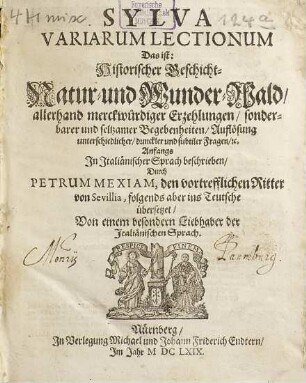 4 H misc. 124a
SYLVA
VARIARUM LECTIONUM
Das ist:
Historischer Geschicht-
Natur-und Wunder-Wald/
allerhand merckwürdiger Erzehlungen/ sonder-
barer und seltzamer Begebenheiten/ Auflösung
unterschiedlicher/ dunckler und subtiler Fragen/ꝛc.
Anfangs
In Italiänischer Sprach beschrieben/
Durch
PETRUM MEXIAM, den vortrefflichen Ritter
von Sevillia, folgends aber ins Teutsche
übersetzet/
Von einem besondern Liebhaber der
Italiänischen Sprach.
RESPICE FINEM
Nürnberg/
In Verlegung Michael und Johann Friderich Endtern/
Im Jahr M DC LXIX.